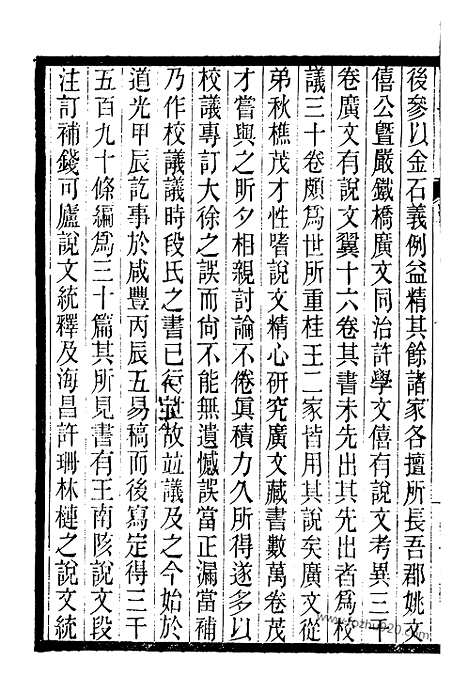 後參以金石義例益精其餘諸家各擅所長吾郡姚文
僖公曁嚴鐵橋廣文同治許學文僖有說文考異三十
卷廣文有說文翼十六卷其書未先出其先出者爲校
議三十卷頗爲世所重桂王二家皆用其說矣廣文從
弟秋樵茂才性嗜說文精心研究廣文藏書數萬卷茂
才嘗與之昕夕相親討論不倦眞積力久所得遂多以
校議專訂大徐之誤而尙不能無遺憾誤當正漏當補
乃作校議議時段氏之書已行世故竝議及之今始於
道光甲辰訖事於咸豐丙辰五易稿而後寫定得三千
五百九十條編爲三十篇其所見書有王南陔說文段
注訂補錢可廬說文統釋及海昌許珊林槤之說文統
www.fozhu920.com